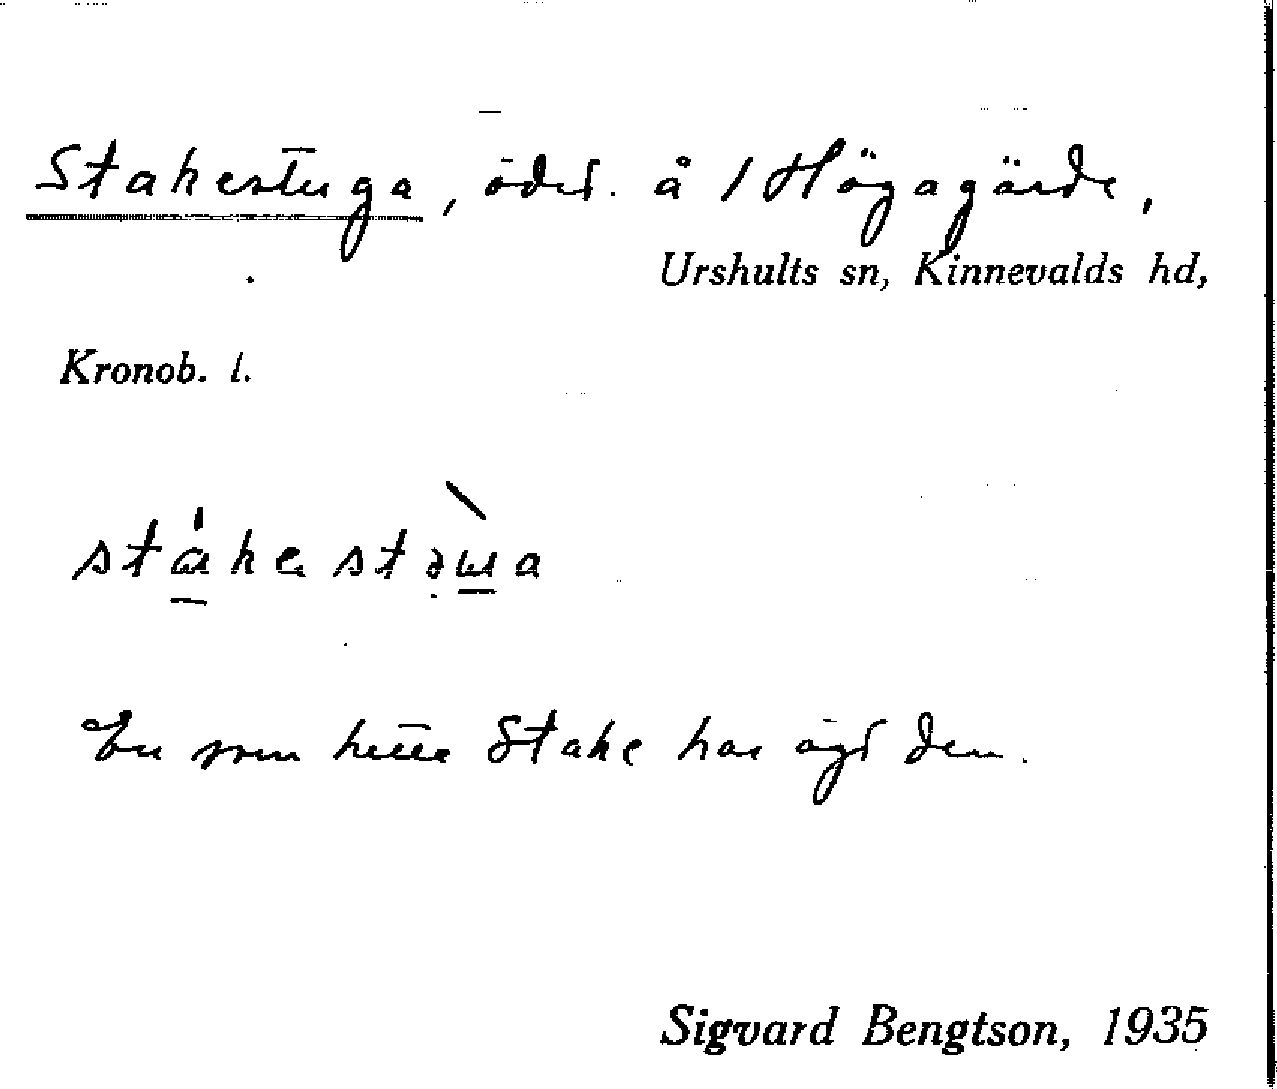 Stakestuga, ödet. å 1 Högagärde,
Urshults sn, Kinnevalds hd,
Kronob. l.
stakestəɯa
En som hette Stake har ägt den.
Sigvard Bengtson, 1935